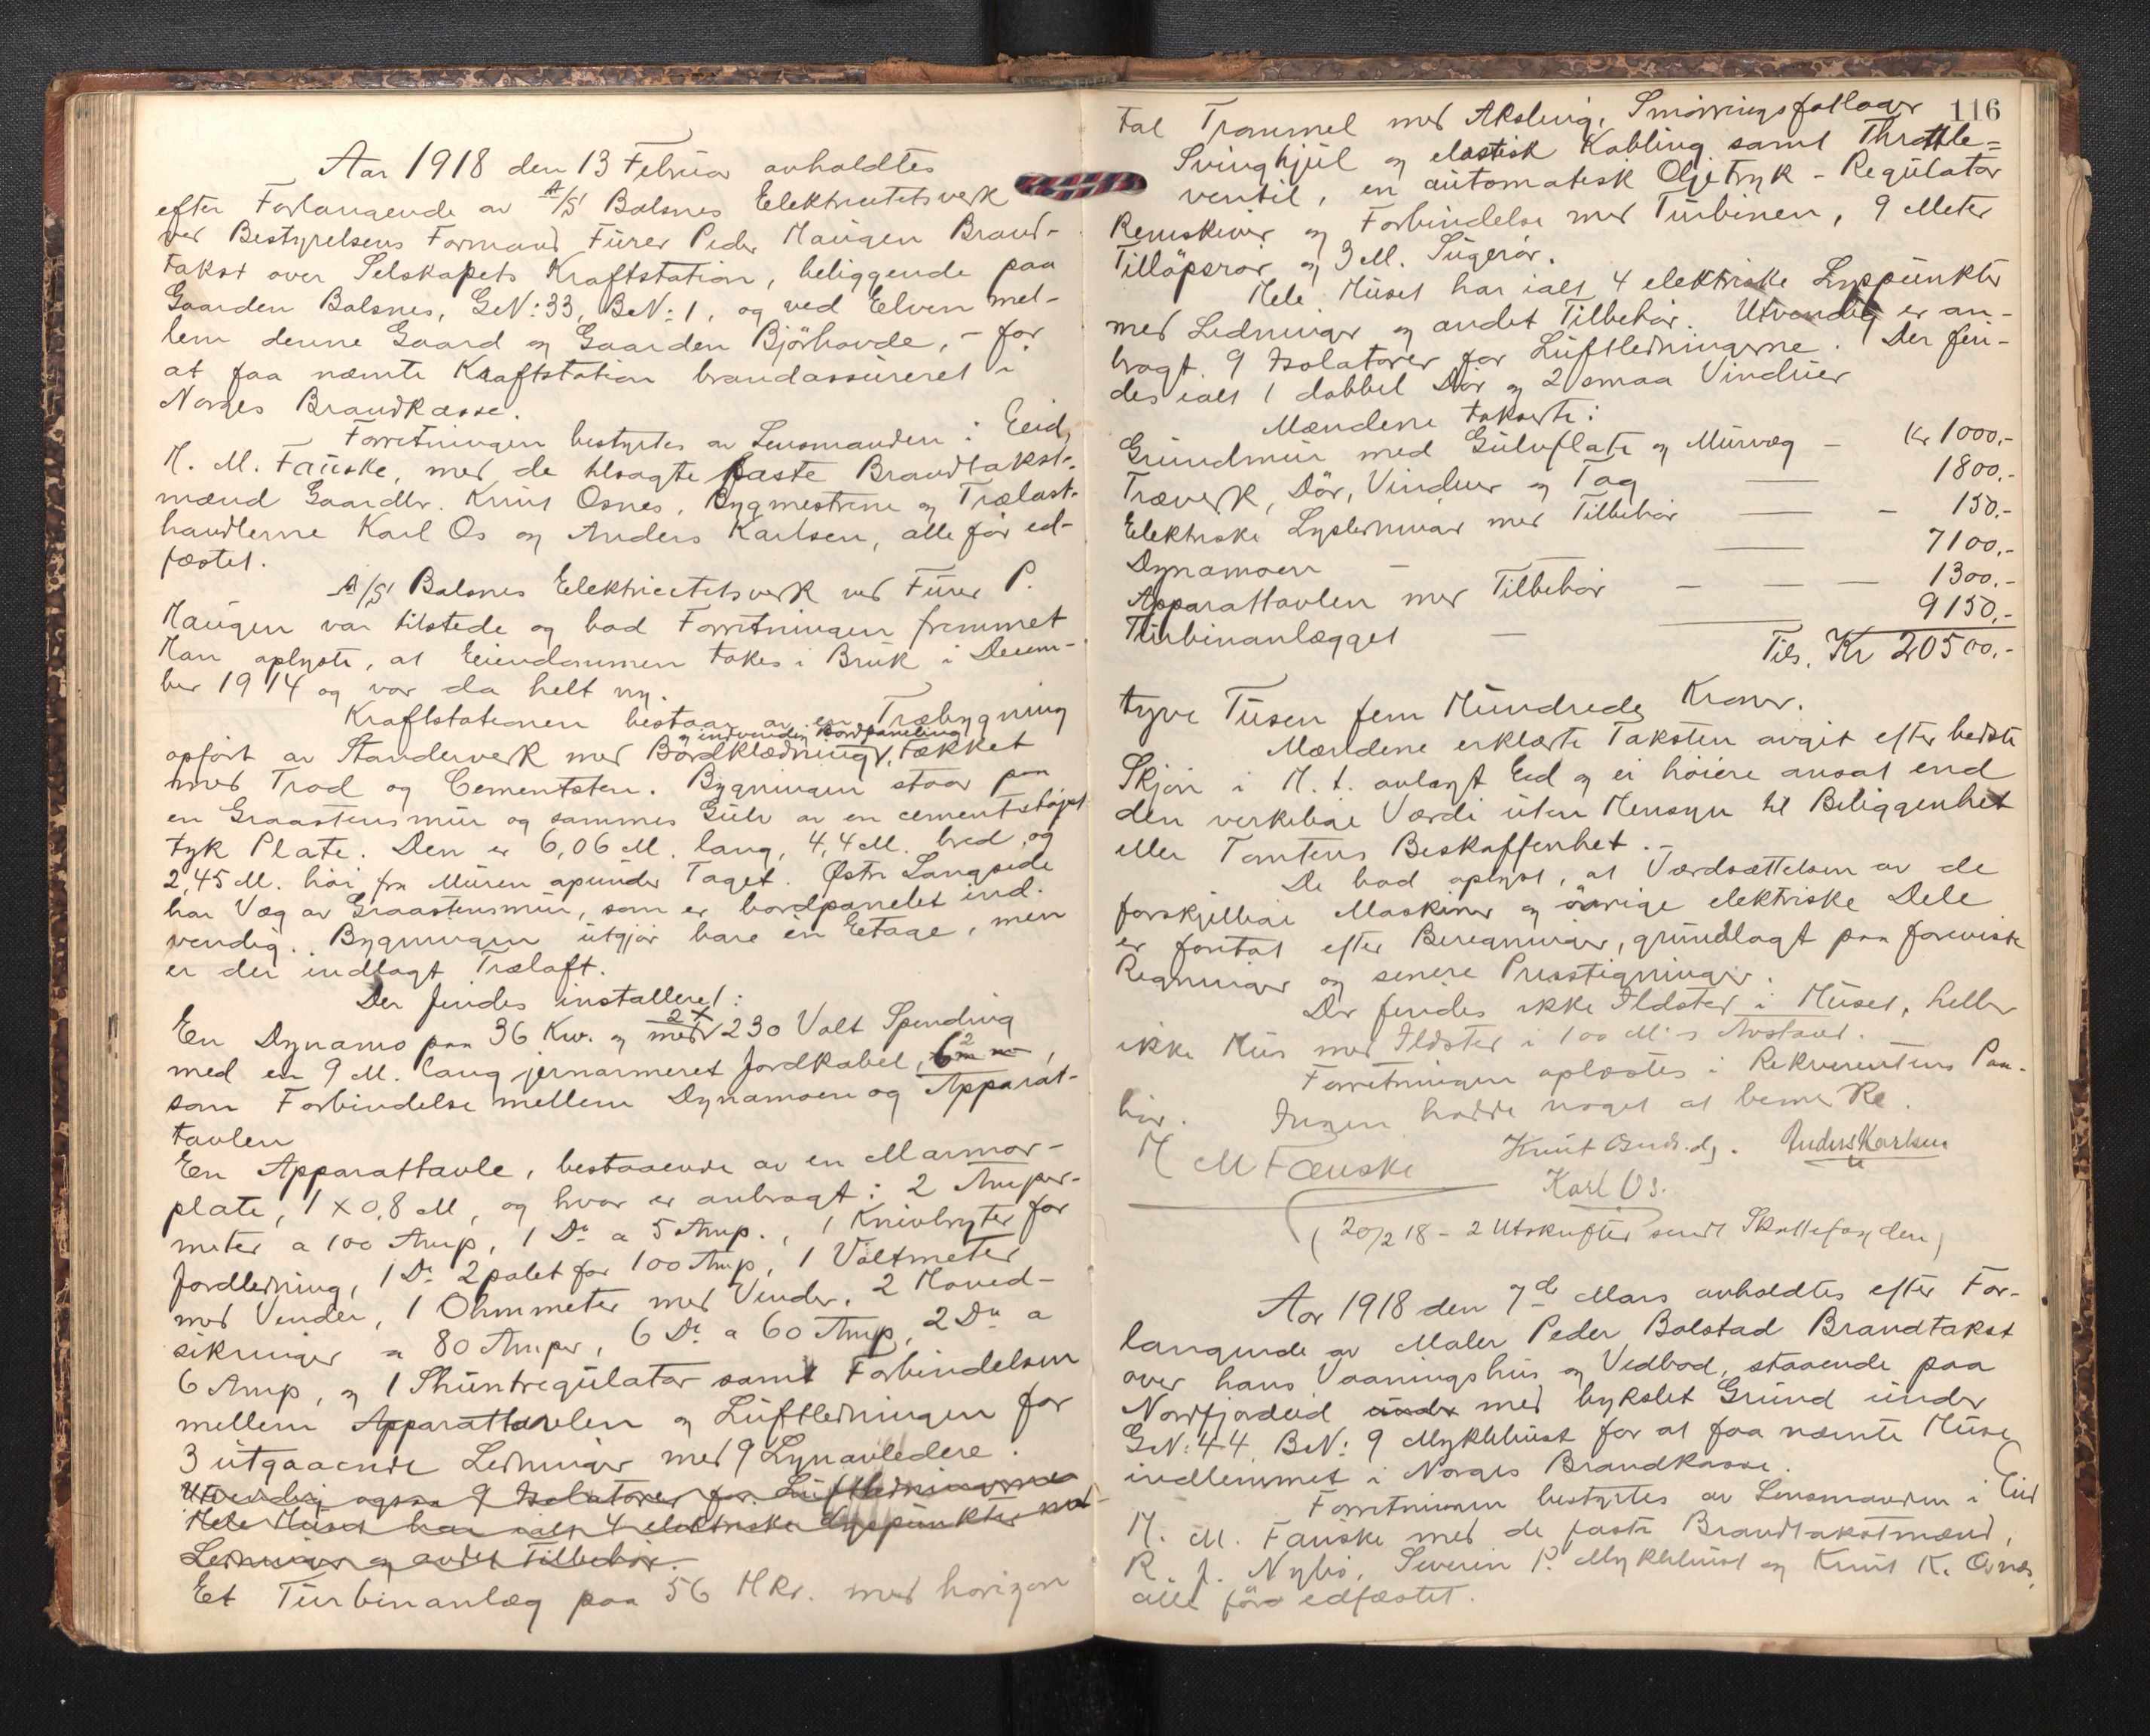 Aar 1918 den 13 Februar avholdtes
efter Forlangende av A/S Balsnes Elektricitetsverk
ved Bestyrelsens Formand Furer Peder Haugen Brand-
takst over Selskapets Kraftstation, beliggende paa
Gaarden Balsnes, GN: 33, BN: 1, og ved Elven mel-
lem denne Gaard og Gaarden Bjørhovde, - for
at faa næmte Kraftstation brandassureret i
Norges Brandkasse.
Forretningen bestyrtes av Lensmanden i Eid,
H. M. Fauske, med de tilsagte faste Brandtakst-
mænd Gaardbr. Knut Osnes, Bygmestrene og Trælast-
handlerne Karl Os og Anders Karlsen, alle før ed-
fæstet.
A/S Balsnes Elektricitetsverk ved Furer P.
Haugen var tilstede og bad Forretningen fremmet
Han oplyste, at Eiendommen tokes i Bruk i Decem-
ber 1914 og var da helt ny.
Kraftstationen bestaar av en Træbygning
og indvendig Bordpaneling
opført av Standerverk med Bordklædning, tækket
med Trod og Cementsten. Bygningen staar paa
en Graastensmur og sammes Gulv av en cementstøpt
tyk Plate. Den er 6,06 M. lang, 4,4 M. bred og
2,45 M. høi fra Muren apunder Taget. Østre Langside
har Væg av Graastensmur, som er bordpanelet ind-
vendig. Bygningen utgjør bare én Etage, men
er der indlagt Træloft.
Der findes installeret:
2 x
En Dynamo paa 36 Kw. og med 230 Volt Spending
med en 9 M. lang jernarmeret Jordkabel, 6 m m²,
som Forbindelse mellem Dynamoen og Apparat-
tavlen
En Apparattavle, bestaaende av en Marmor-
plate, 1 x 0,8 M, og hvor er anbragt: 2 Amper-
meter a 100 Amp, 1 Do a 5 Amp., 1 Knivbryter for
Jordledning, 1 Do 2polet for 100 Amp, 1 Voltmeter
med Vender, 1 Ohmmeter med Vender, 2 Hoved-
sikringer a 80 Amper, 6 Do a 60 Amp, 2 Do a
6 Amp, og 1 Shuntregulator samt Forbindelsen
mellem Apparattavlen og Luftledningen for
3 utgaaende Ledninger med 9 Lynavledere.
Utvendig ogsaa 9 Isolatorer for Luftledningerne
Hele Huset har ialt 4 elektriske Lyspunkter med
Ledninger og andet Tilbehør.
Et Turbinanlæg paa 56 HKr. med horizon
116
tal Trommel med Aksling, Smørringsfotlager
Svinghjul og elastisk Kobling samt Throttle=
ventil, en automatisk Oljetryk-Regulator
Remskiver og Forbindelse med Turbinen, 9 Meter
Tilløpsrør og 3 M. Sugerør.
Hele Huset har ialt 4 elektriske Lyspunkter
med Ledninger og andet Tilbehør. Utvendig er an-
bragt 9 Isolatorer for Luftledningerne. Der fin-
des ialt 1 dobbel Dør og 2 smaa Vinduer
Mændene takserte:
Grundmur med Gulvplate og Murvæg - Kr 1000,-
Træverk, Dør, Vinduer og Tag — 1800,-
Elektriske Lysledninger med Tilbehør — - 150,-
Dynamoen - — 7100,-
Apparattavlen med Tilbehør - — — 1300,-
Turbinanlægget — — 9150,-
Tils. Kr 20500,-
tyve Tusen fem Hundrede Kroner.
Mændene erklærte Taksten avgit efter bedste
Skjøn i H. t. avlagt Eed og ei høiere ansat end
den verkelige Værdi uten Hensyn til Beliggenhet
eller Tomtens Beskaffenhet. -
De bad oplyst, at Værdsættelsen av de
forskjellige Maskiner og øvrige elektriske Dele
er foretat efter Beregninger, grundlagt paa foreviste
Regninger og senere Prisstigninger.
Der findes ikke Ildsted i Huset, heller
ikke Hus med Ildsted i 100 M:s Avstand.
Forretningen oplæstes i Rekvirentens Paa-
hør. Ingen hadde noget at bemerke.
H M Fauske Knut Osnes. Anders Karlsen
Karl Os.
(20/2 18 - 2 Utskrifter sendt Skattefogden)
Aar 1918 den 7de Mars avholdtes efter For-
langende av Maler Peder Bolstad Brandtakst
over hans Vaaningshus og Vedbod, staaende paa
Nordfjordeid under med bykslet Grund under
GN: 44 BN: 9 Myklebust for at faa næmte Huse
indlemmet i Norges Brandkasse.
Forretningen bestyrtes av Lensmanden i Eid
H. M. Fauske med de faste Brandtakstmænd,
R. J. Nybø, Severin P. Myklebust og Knut K. Osnes,
alle før edfæstet.